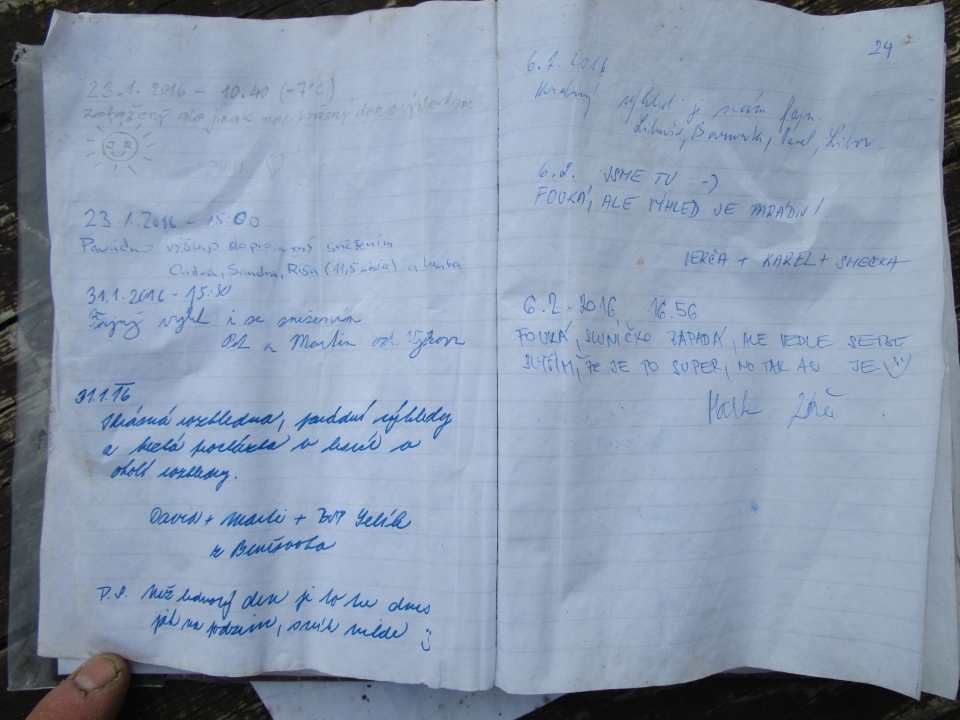 23.1.2016 - 10.40 (-7°C)
Zatažený ale jinak moc krásný den s výhledem
J R
23.1.2016 - 15:00
výšlap doprovázený sněžením
Ondra, Sandra, Ríša (11,5 měsíce) a Lenka
31.1.2016 - 15:30
Fajný i se sněžením
a Martin od
31.1.16
Krásná rozhledna, parádní výhledy
a bílá pocházka v lese a
okolí rozhledny.
David + + Jelík
z Benešovska
P.S. Než lednový den je to tu dnes
jak na podzim, sníh nikde :)
24
6.2.2016
Krásný výhled je nám fajn.
Libuše, Barunka, Pavel, Libor
6.2. JSME TU :-)
FOUKÁ, ALE VÝHLED JE PARÁDNÍ!
VERČA + KAREL + SMEČKA
6.2.2016, 16.56
FOUKÁ, SLUNÍČKO ZAPADÁ, ALE VEDLE SEBE
SLYŠÍM, ŽE JE TO SUPER, NO TAK ASI JE :)